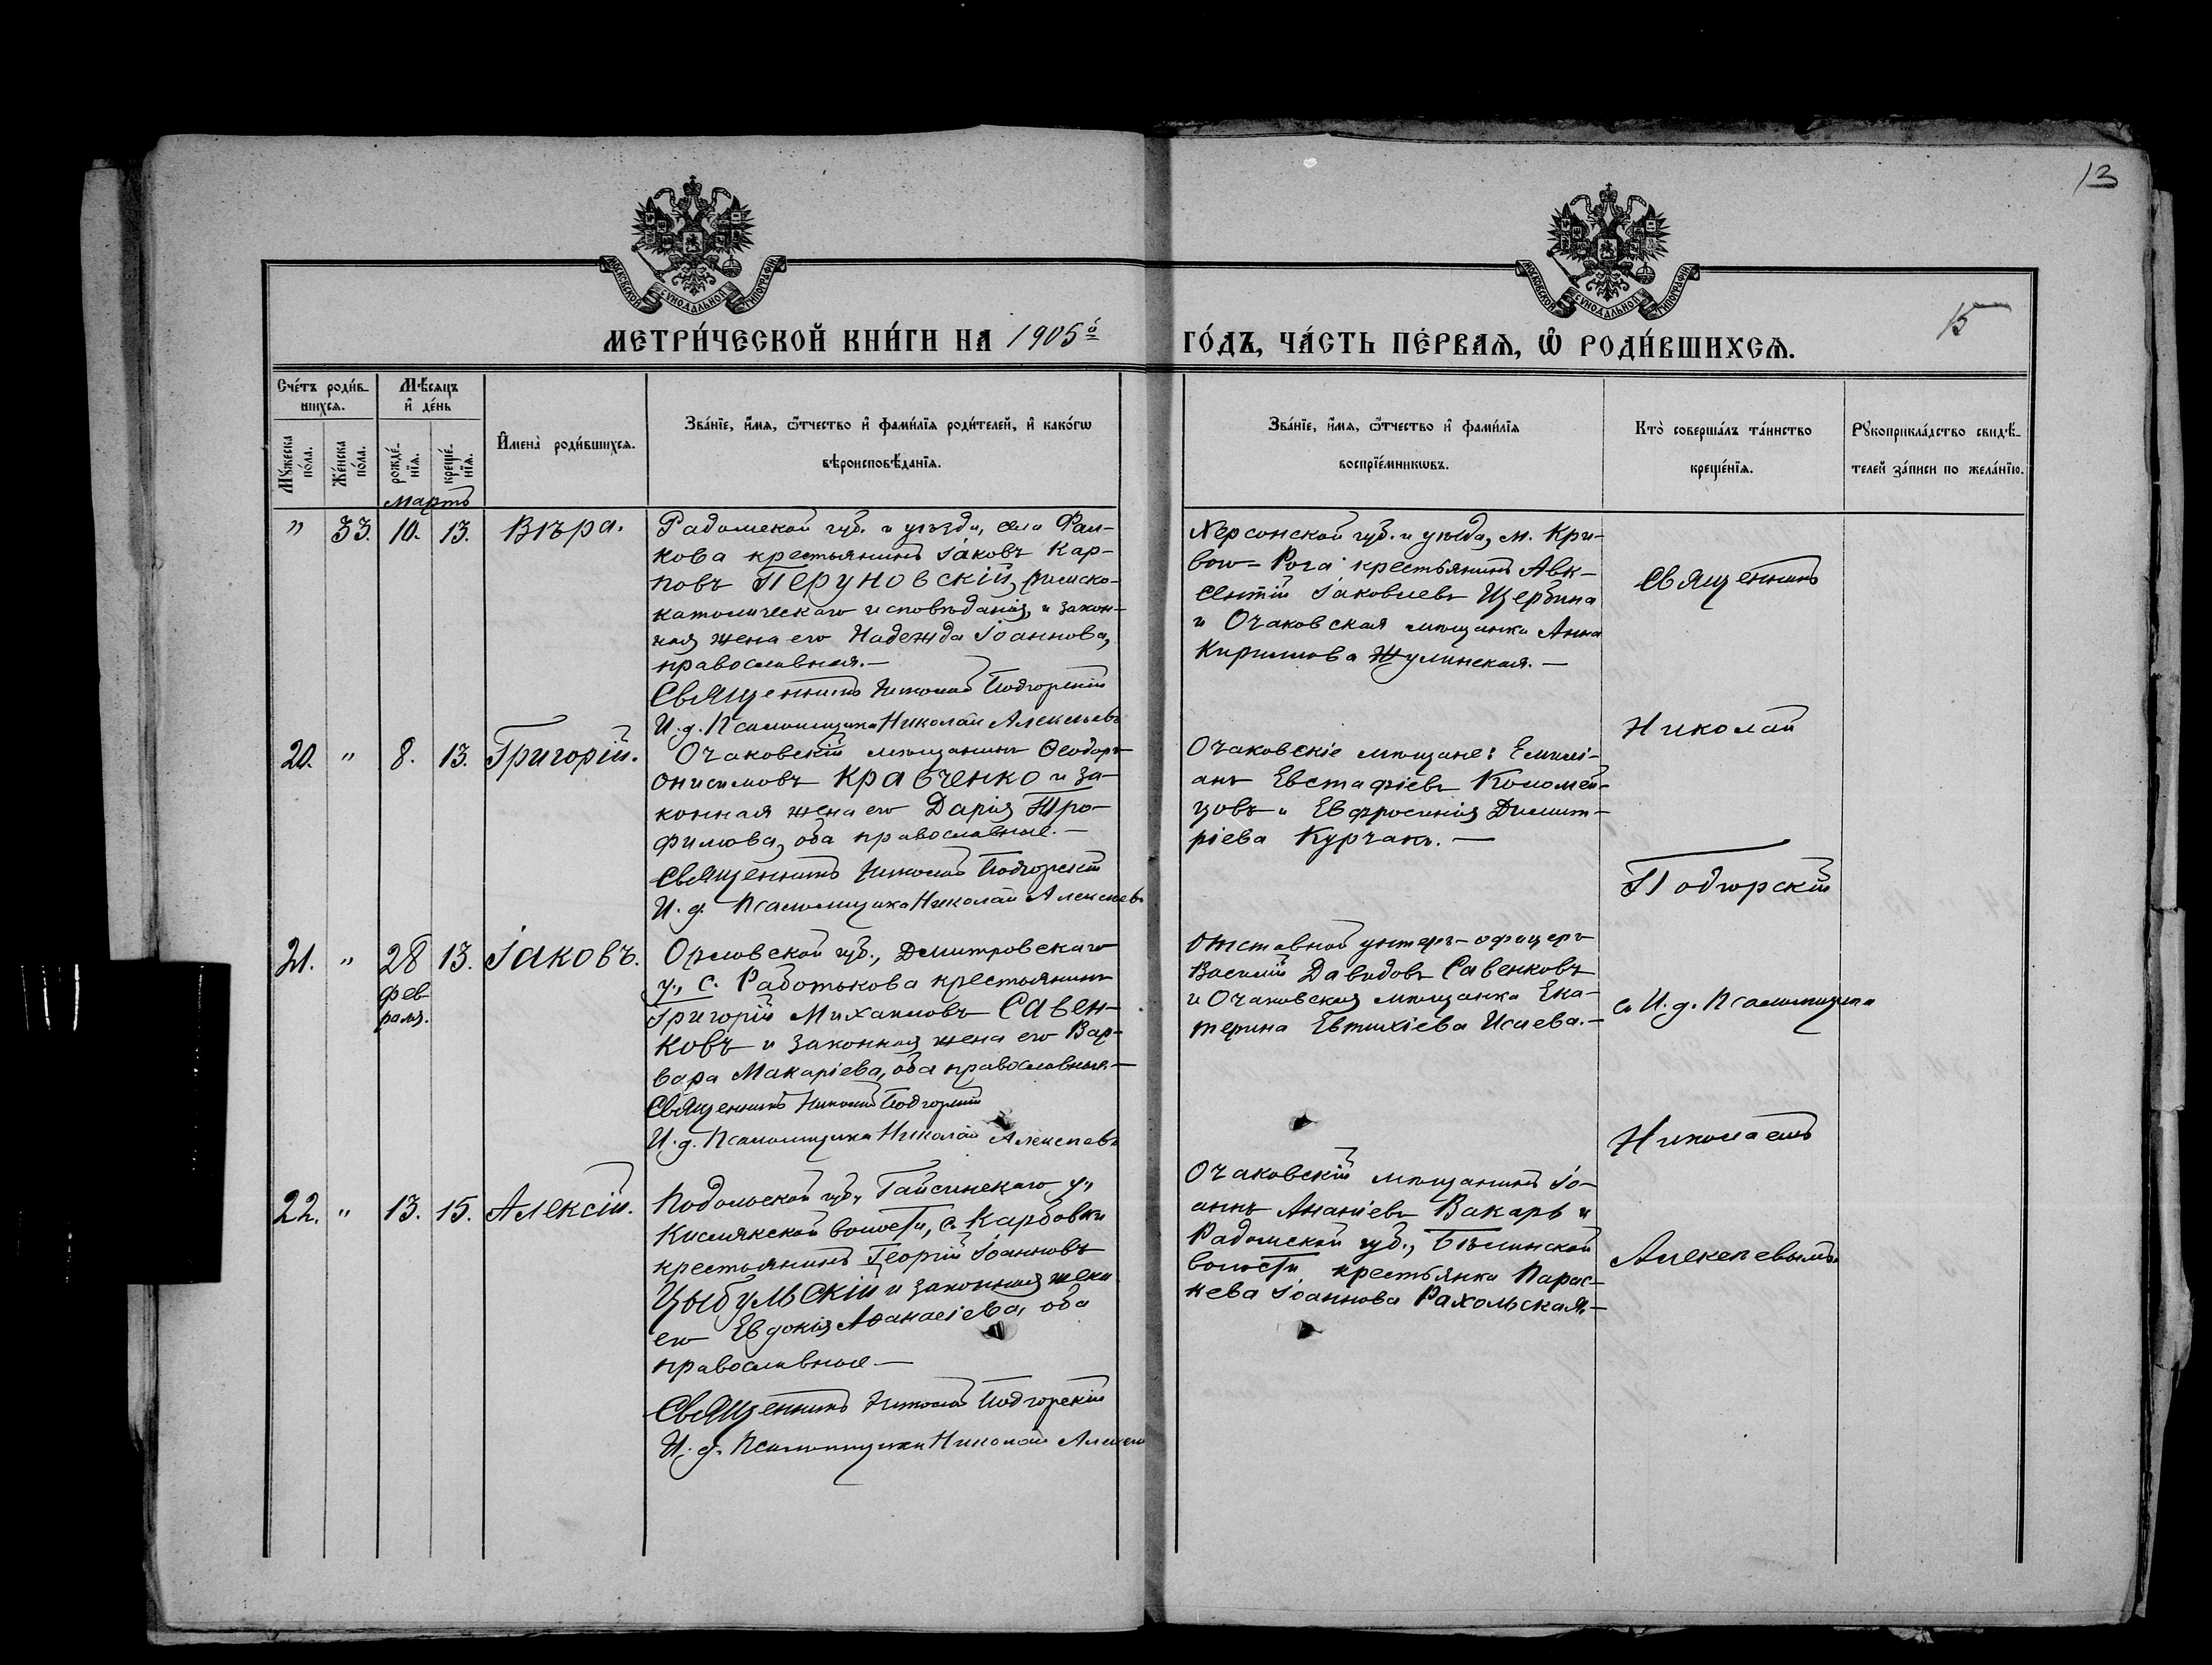 13
МОСКОВСКОЙ СѴНОДАЛЬНОЙ ТИПОГРАФІИ
МОСКОВСКОЙ СѴНОДАЛЬНОЙ ТИПОГРАФІИ
МЕТРИ́ЧЕСКОЙ КНИ́ГИ НА 1905й
ГО́ДЪ, ЧА́СТЬ ПЕ́РВАѦ, Ѡ҆ РОДИ́ВШИХСѦ.
15
Сче́тъ роди́в-
шихсѧ.
Мѣ́сѧцъ
и҆ де́нь
Мꙋ́жеска по́ла.
Же́нска по́ла.
рожде́-нїѧ.
креще́-нїѧ.
И҆мена̀ роди́вшихсѧ.
Зва́нїе, и҆́мѧ, ѻ҆́тчество и҆ фами́лїѧ роди́телей, и҆ како́гѡ
вѣроисповѣ́данїѧ.
Зва́нїе, и҆́мѧ, ѻ҆́тчество и҆ фами́лїѧ
воспрїе́мникѡвъ.
Кто̀ соверша́лъ та́инство
креще́нїѧ.
Рꙋкоприкла́дство свидѣ́-
телей за́писи по жела́нїю.
Мартъ
" 33. 10. 13. Вѣра.
Радомской губ. и уѣзда, села Фал-
кова крестьянинъ Іаковъ Кар-
повъ Перуновскій, римско-
католическаго исповѣданія, и закон-
ная жена его Надежда Іоаннова,
православная.—
Священникъ Николай Подгорскій
И. д. Псаломщика Николай Алексѣевъ
Херсонской губ. и уѣзда, м. Кри-
вого-Рога крестьянинъ Авк-
сентій Іаковлевъ Щербина
и Очаковская мѣщанка Анна
Кириллова Жулинская.—
20. " 8. 13. Григорій.
Очаковскій мѣщанинъ Ѳеодоръ
Онисимовъ Кравченко и за-
конная жена его Дарія Тро-
фимова, оба православные.—
Священникъ Николай Подгорскій
И. д. Псаломщика Николай Алексѣевъ
Очаковскіе мѣщане: Емилі-
анъ Евстафіевъ Коломей-
цовъ и Евфросинія Димит-
ріева Курчакъ.—
21. " 28 13. Іаковъ.
фев-
раля.
Орловской губ., Дмитровскаго
у., с. Работькова крестьянинъ
Григорій Михаиловъ Савен-
ковъ и законная жена его Вар-
вара Макаріева, оба православные.—
Священникъ Николай Подгорскій
И. д. Псаломщика Николай Алексѣевъ
Отставной унтеръ-офицеръ
Василій Давидовъ Савенковъ
и Очаковская мѣщанка Ека-
терина Евтихіева Исаева.—
22. " 13. 15. Алексій.
Подольской губ., Гайсинскаго у.,
Кислякской волости, с. Карбовки
крестьянинъ Георгій Іоанновъ
Цыбульскій и законная жена
его Евдокія Аѳанасіева, оба
православные—
Священникъ Николай Подгорскій
И. д. Псаломщика Николай Алексѣев
Очаковскій мѣщанинъ Іо-
аннъ Ананіевъ Вакарь и
Радомской губ., Бѣлинской
волости крестьянка Парас-
кева Іоаннова Рахольская.—
Священникъ
Николай
Подгорскій
съ И. д. Псаломщика
Николаемъ
Алексѣевымъ